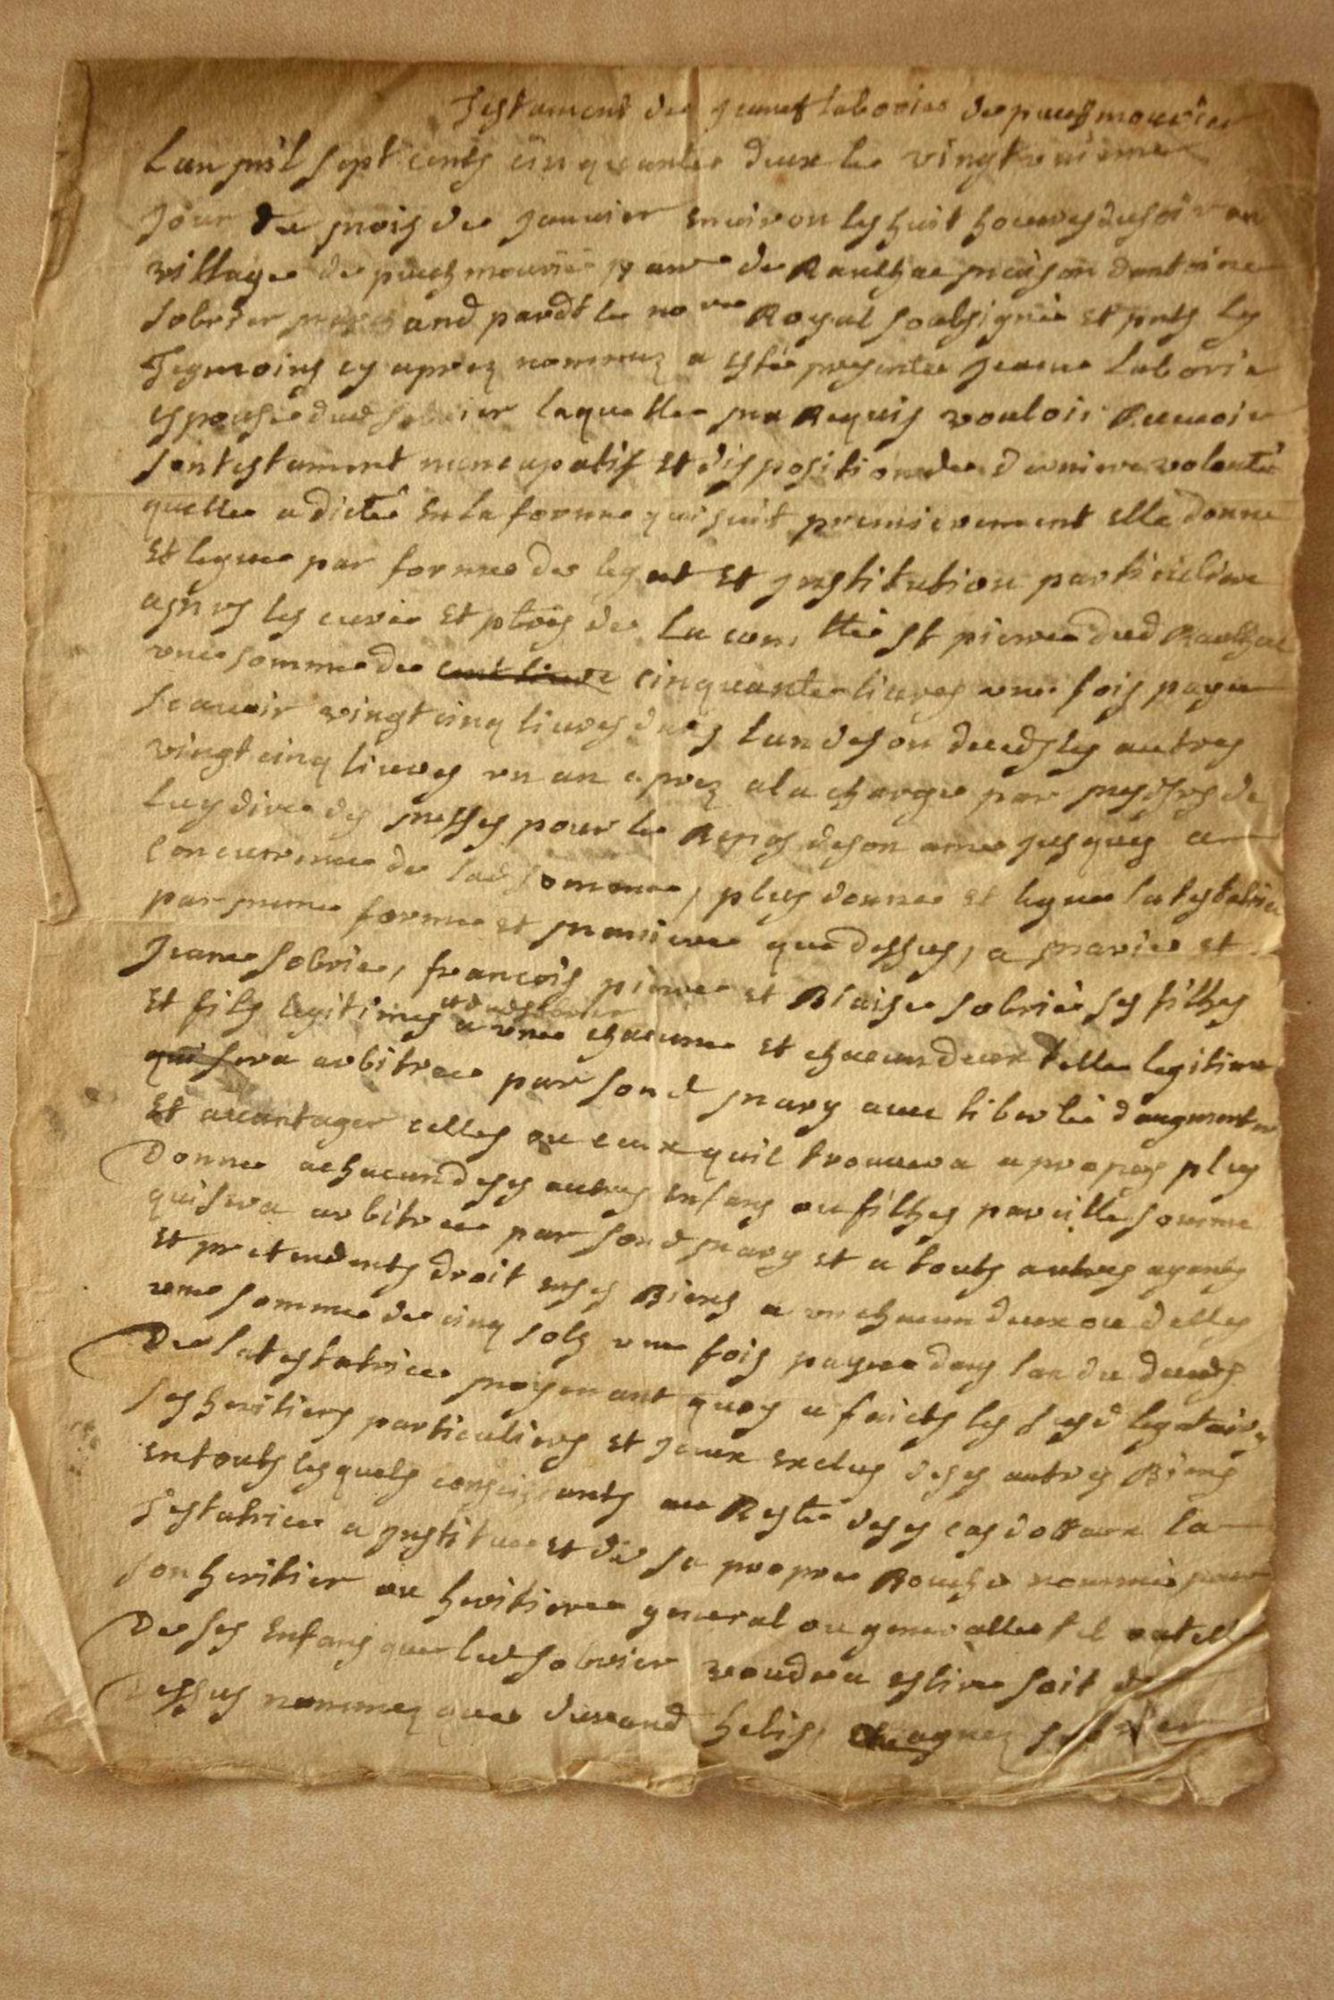 Testament de Jeanne laborie de puechmourier
Lan mil sept cents cinquante deux le vingtroisieme
Jour de mois de Janvier environ les huit heures du soir au
village de puechmourié de Raulhac maison dantoine
Sobrier and pardt le no re Royal soubsigné et pnts les
Tesmoins cy aprez nommez a esté presente Jeanne Laborie
espouse dud sobrier laquelle ma Requis vouloir Recevoir
son testament nuncupatif et disposition de derniere volonté
quelle a dicté en la forme qui suit premierement elle donne
et legue par forme de legat et institution particuliere
a mrs les curé et ptres de la com. tté st pierre dud Raulhac
une somme de cent livre cinquante livres une fois payee
scavoir vingt cinq livres lan de son decedz les autres
vingt cinq livres un an aprez a la charge par mesdsrs de
luy dire des messes pour le Repos de son ame jusques a
concurrence de lad somme, plus donne et legue la testatrice
par meme forme et maniere que dessus, a marie et
Jeane sobrier, françois pierre et Blaise sobrié ses filhes
et fils legitimes a une chacune et chacun deux telle legitime
qui sera arbitree par sond mary avec liberté daugmenter
et avantager celles ou ceux quil trouvera a propos plus
donne a chacun de ses autres enfans ou filhes pareille somme
qui sera arbitree par sond mary et a touts autres ayants
et pretendents droit en ses Biens a un chacun deux ou delles
une somme de cinq sols une fois payee dans lan du decedz
de la testatrice moyenant quoy a faicts les sesd legataires
ses heritiers particuliers et iceux exclus de ses autres Biens
en touts lesquels consistants au Reste de ses cas dottaux la
Testatrice a institué et de sa propre Bouche nommé pour
son heritier ou heritiere general ou generalle tel ou telle
de ses enfans que led sobrier voudra eslire soit de
dessus nommez que durand helis, agnez sobrier